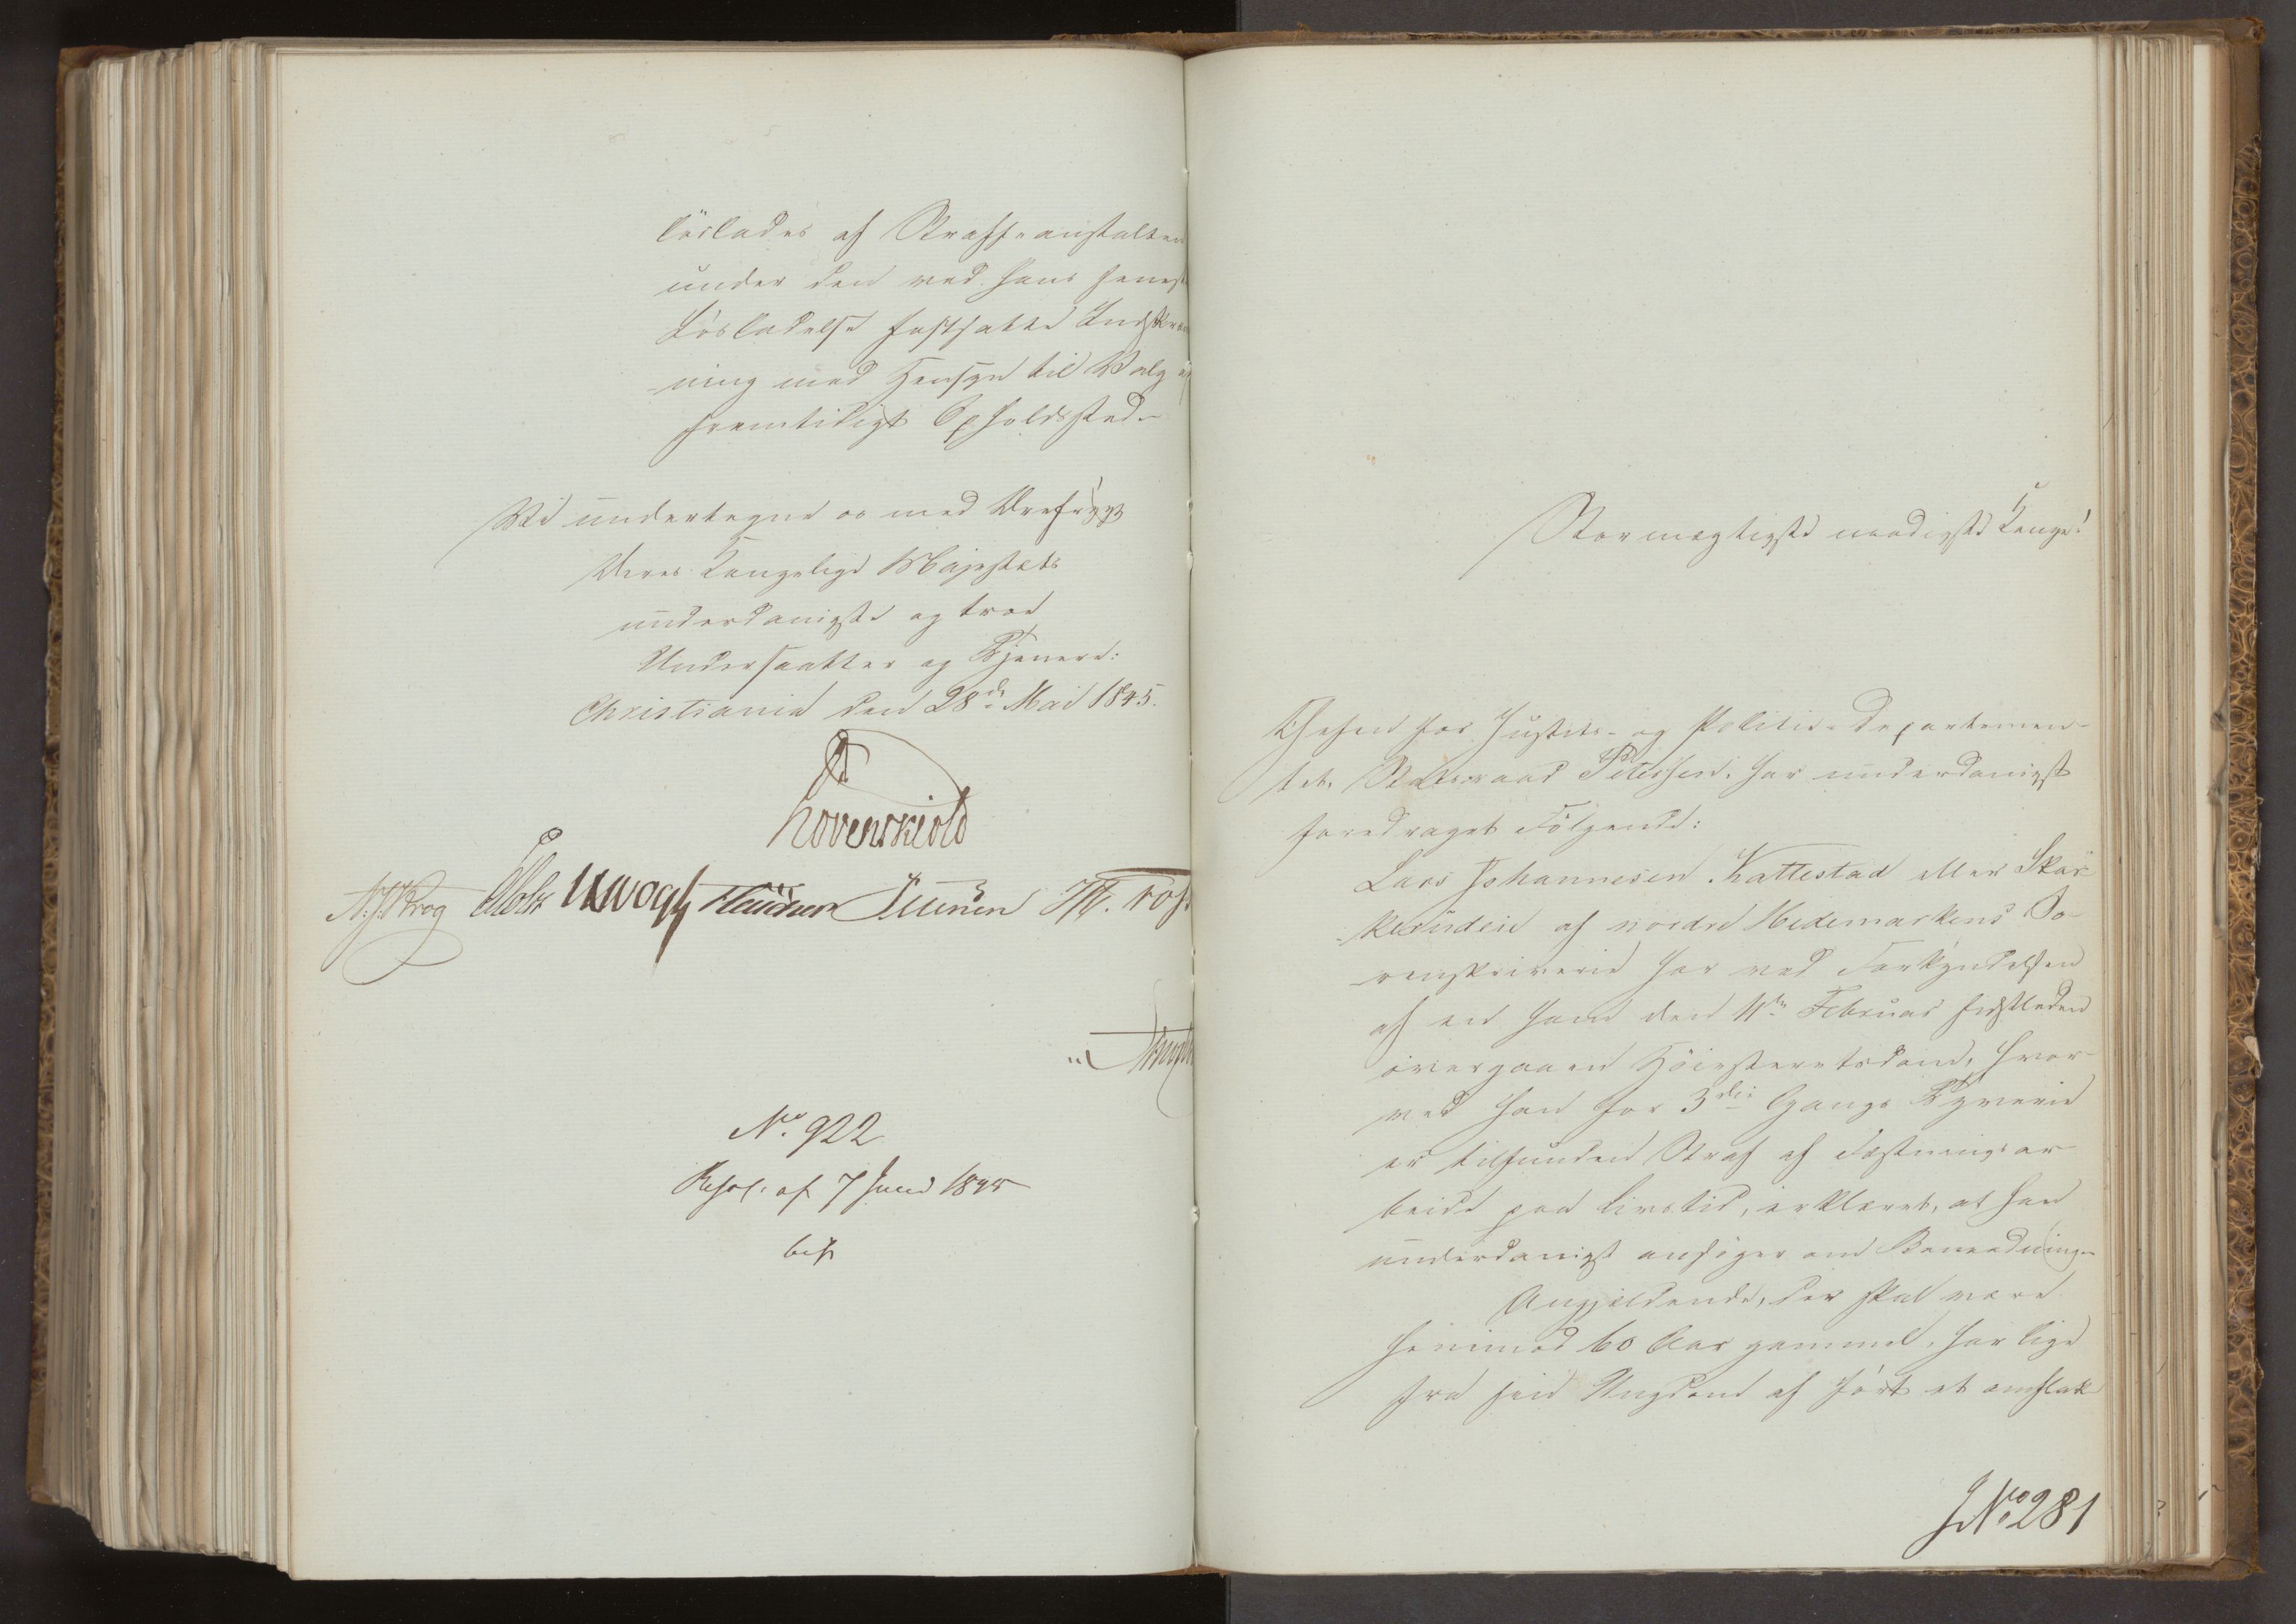 löslades af Straffeanstalten
under den ved hans seneste
Løsladelse fastsatte Indskrænk
ning med Hensyn til Valg af
fremtidigt Opholdssted.
Vi undertegne os med Ærefrygt
Deres Kongelige Majestæts
underdanigste og troe
Undersaatter og Tjenere:
Christiania den 28de Mai 1845.
Løvenskiold
N. J. Krog JHVogt
No. 922
Resol. af 7 Juni 1845
bif
Stormægtigste naadigste Konge!
Chefen for Justits- og Politie-Departemen-
tet, Statsraad Petersen, har underdanigst
foredraget Følgende:
Lars Johannesen Kattestad eller Skar-
kerudeie af nordre Hedemarkens So-
renskriverie har ved Forkyndelsen
af en ham den 11te Februar sidstleden
overgaaen Høiesteretsdom, hvor-
ved han for 3die Gangs Tyverie
er tilfunden Straf af Fæstningsar-
beide paa Livstid, erklæret, at han
underdanigst ansøger om Benaadning.
Angjældende, der skal være
henimod 60 Aar gammel, har lige
fra sin Ungdom af ført et omflak-
JNo 281